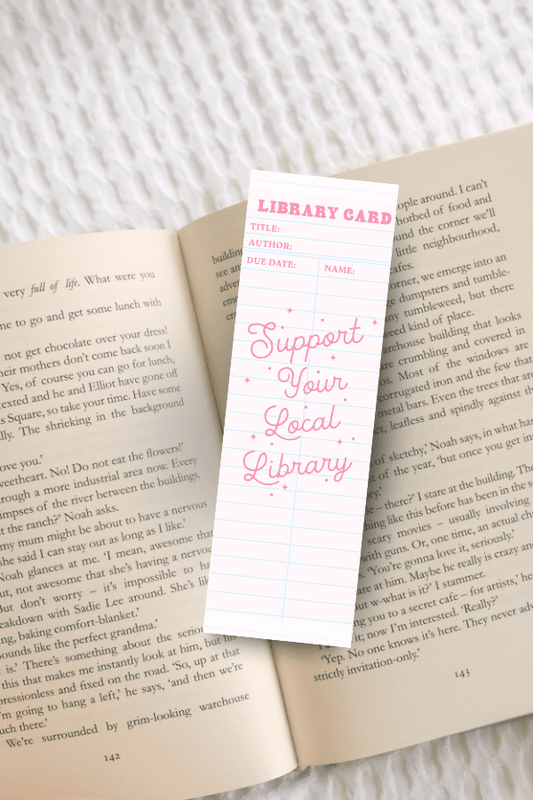 very full of life. What were you
me to go and get some lunch with
not get chocolate over your dress!
heir mothers don't come back soon I
Yes, of course you can go for lunch,
texted and he and Elliot have gone off
s Square, so take your time. Have some
lly. The shrieking in the background
ove you.'
weetheart. No! Do not eat the flowers!'
through a more industrial area now. Every
limpses of the river between the buildings.
t the ranch?' Noah asks.
my mum might be about to have a nervous
she said I can stay out as long as I like.'
Noah glances at me. 'I mean, awesome that
ut, not awesome that she's having a nervous
But don't worry – it's impossible to ha
eakdown with Sadie Lee around. She's lik
ng, baking comfort-blanket.'
ounds like the perfect grandma.'
is.' There's something about the seriou
this that makes me instantly look at him, but his
pressionless and fixed on the road. 'So, up at that
m going to hang a left,' he says, 'and then we're
uch there.'
We're surrounded by grim-looking warehouse
142
LIBRARY CARD
TITLE:
AUTHOR:
DUE DATE: NAME:
Support
Your
Local
Library
ople around. I can't
hotbed of food and
und the corner we'll
little neighbourhood,
afes.
orner, we emerge into an
ge dumpsters and tumble-
ny tumbleweed, but there
eed kind of place.
rehouse building that looks
are crumbling and covered in
s. Most of the windows are
corrugated iron and the few that
metal bars. Even the trees that are
et, leafless and spindly against the
of sketchy,' Noah says, in what has
of the year, 'but once you get in
– there?' I stare at the building. The
thing like this before has been in the s
scary movies – usually involving
with guns. Or, one time, an actual ch
'You're gonna love it, seriously.'
are at him. Maybe he really is crazy and
ut w-what is it?' I stammer.
ing you to a secret cafe – for artists,' he
it, now I'm interested. 'Really?'
'Yep. No one knows it's here. They never adv
strictly invitation-only.'
143